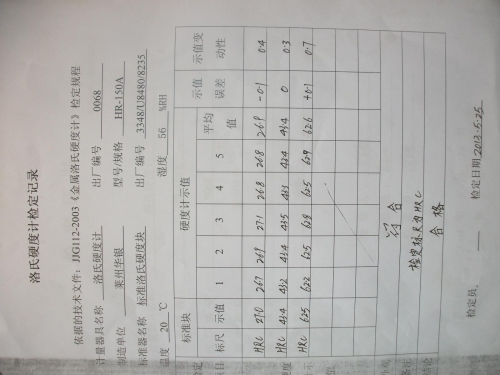 洛氏硬度计检定记录
依据的技术文件：JJG112-2003《金属洛氏硬度计》检定规程
计量器具名称 洛氏硬度计 出厂编号 0068
制造单位 莱州华银 型号/规格 HR-150A
标准器名称 标准洛氏硬度块 出厂编号 3348/U8480/8235
温度 20 ℃ 湿度 56 %RH
标准块 硬度计示值 示值误差 示值变动性
标尺 示值 1 2 3 4 5 平均值
HRC 27.0 26.7 26.9 27.1 26.8 26.8 26.9 -0.1 0.4
HRC 43.4 43.2 43.4 43.5 43.3 43.4 43.4 0 0.3
HRC 62.5 62.2 62.5 62.9 62.5 62.9 62.6 +0.1 0.7
符合
检定标尺为HRC
合格
检定员： 检定日期 2013.5.25